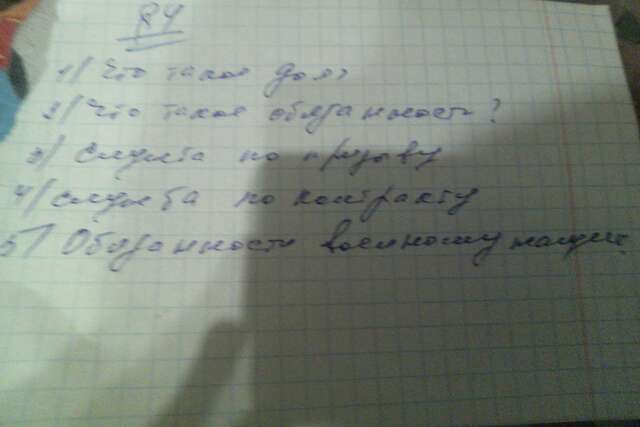 §4
1) Что такое долг
2) Что такое обязанность?
3) Служба по призыву
4) Служба по контракту
5) Обязанности